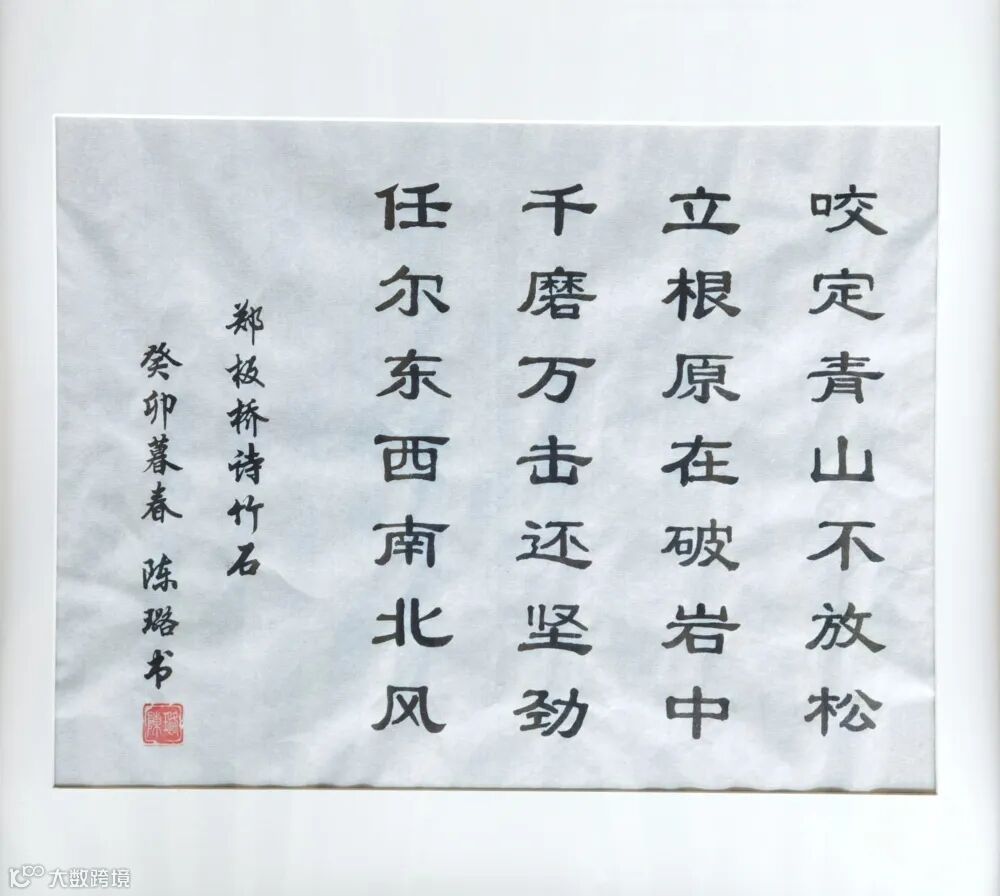 咬定青山不放松
立根原在破岩中
千磨万击还坚劲
任尔东西南北风
郑板桥诗竹石
癸卯暮春 陈璐书
陈璐
大数跨境